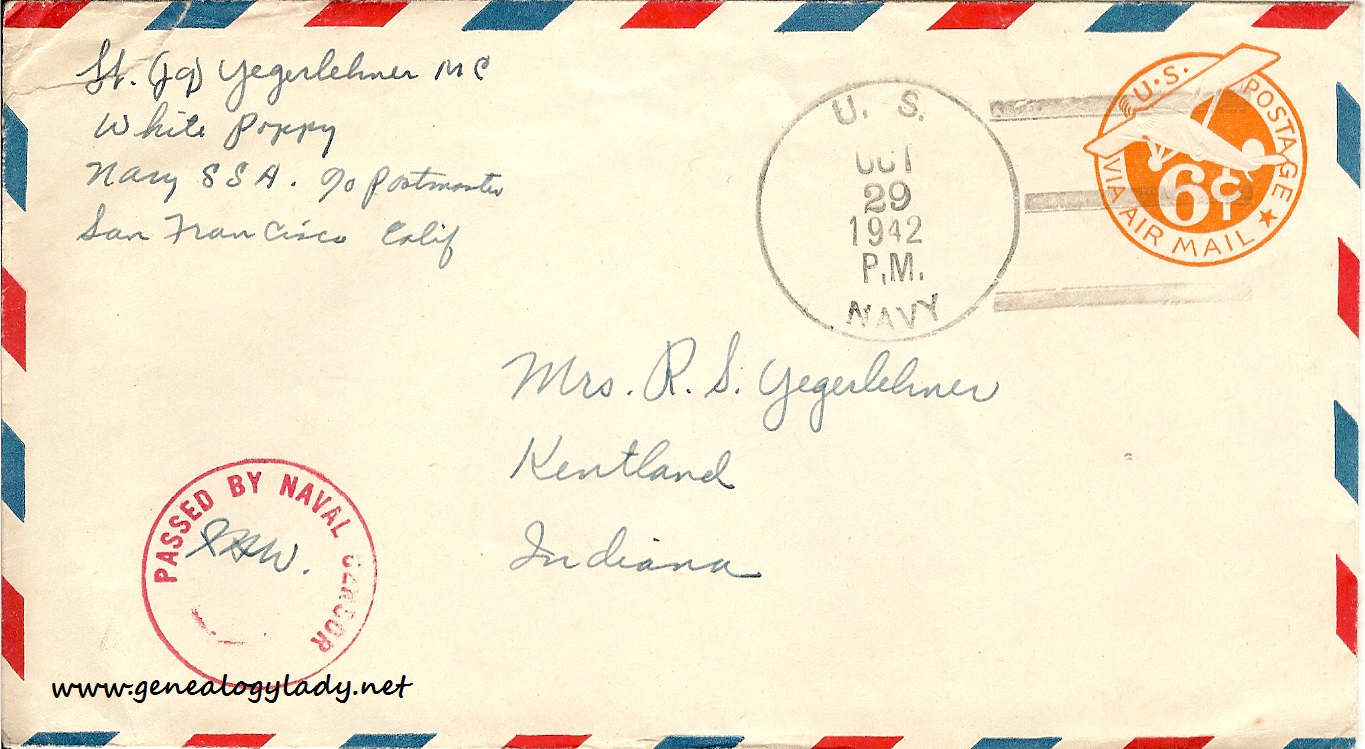 Lt. (jg) Yegerlehner MC
White Poppy
Navy SSA. c/o Postmaster
San Francisco Calif
U. S.
OCT
29
1942
P.M.
NAVY
U.S. POSTAGE
VIA AIR MAIL
6¢
Mrs. R. S. Yegerlehner
Kentland
Indiana
PASSED BY NAVAL CENSOR
www.genealogylady.net